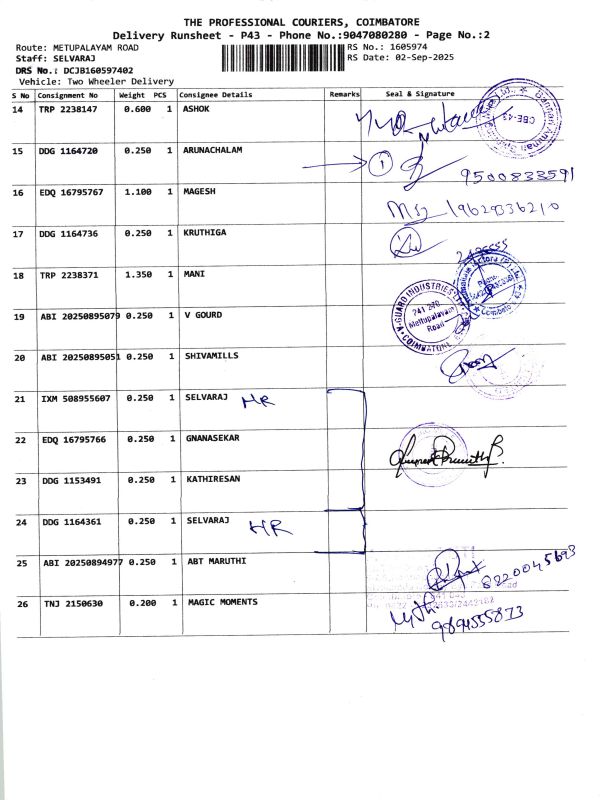 THE PROFESSIONAL COURIERS, COIMBATORE
Delivery Runsheet - P43 - Phone No.:9047080280 - Page No.:2
Route: METUPALAYAM ROAD RS No.: 1605974
Staff: SELVARAJ RS Date: 02-Sep-2025
DRS No.: DCJB160597402
Vehicle: Two Wheeler Delivery
S No Consignment No Weight PCS Consignee Details Remarks Seal & Signature
14 TRP 2238147 0.600 1 ASHOK
CBE-43
15 DDG 1164720 0.250 1 ARUNACHALAM 1
9500833591
16 EDQ 16795767 1.100 1 MAGESH
19629336210
17 DDG 1164736 0.250 1 KRUTHIGA
18 TRP 2238371 1.350 1 MANI
19 ABI 20250895079 0.250 1 V GOURD
GUARD INDUSTRIES
Mettupalayam
Road
COIMBATORE
20 ABI 20250895051 0.250 1 SHIVAMILLS
21 IXM 508955607 0.250 1 SELVARAJ HR
22 EDQ 16795766 0.250 1 GNANASEKAR
23 DDG 1153491 0.250 1 KATHIRESAN
24 DDG 1164361 0.250 1 SELVARAJ HR
25 ABI 20250894977 0.250 1 ABT MARUTHI
8220045693
26 TNJ 2150630 0.200 1 MAGIC MOMENTS
9894555873